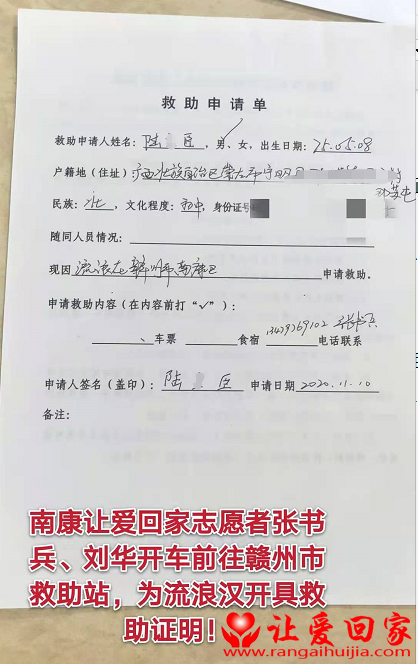 救助申请单
救助申请人姓名：陆 臣，男、女，出生日期：75.05.08
户籍地（住址）广西壮族自治区崇左市宁明
民族：壮，文化程度：初中，身份证号
随同人员情况：
现因流浪在赣州市南康区申请救助.
申请救助内容（在内容前打“√”）：
、车票 食宿 张书兵 电话联系
申请人签名（盖印）：陆 臣 申请日期2020.11.10
备注：
南康让爱回家志愿者张书
兵、刘华开车前往赣州市
救助站，为流浪汉开具救
助证明！
让爱回家
www.rangaihuijia.com